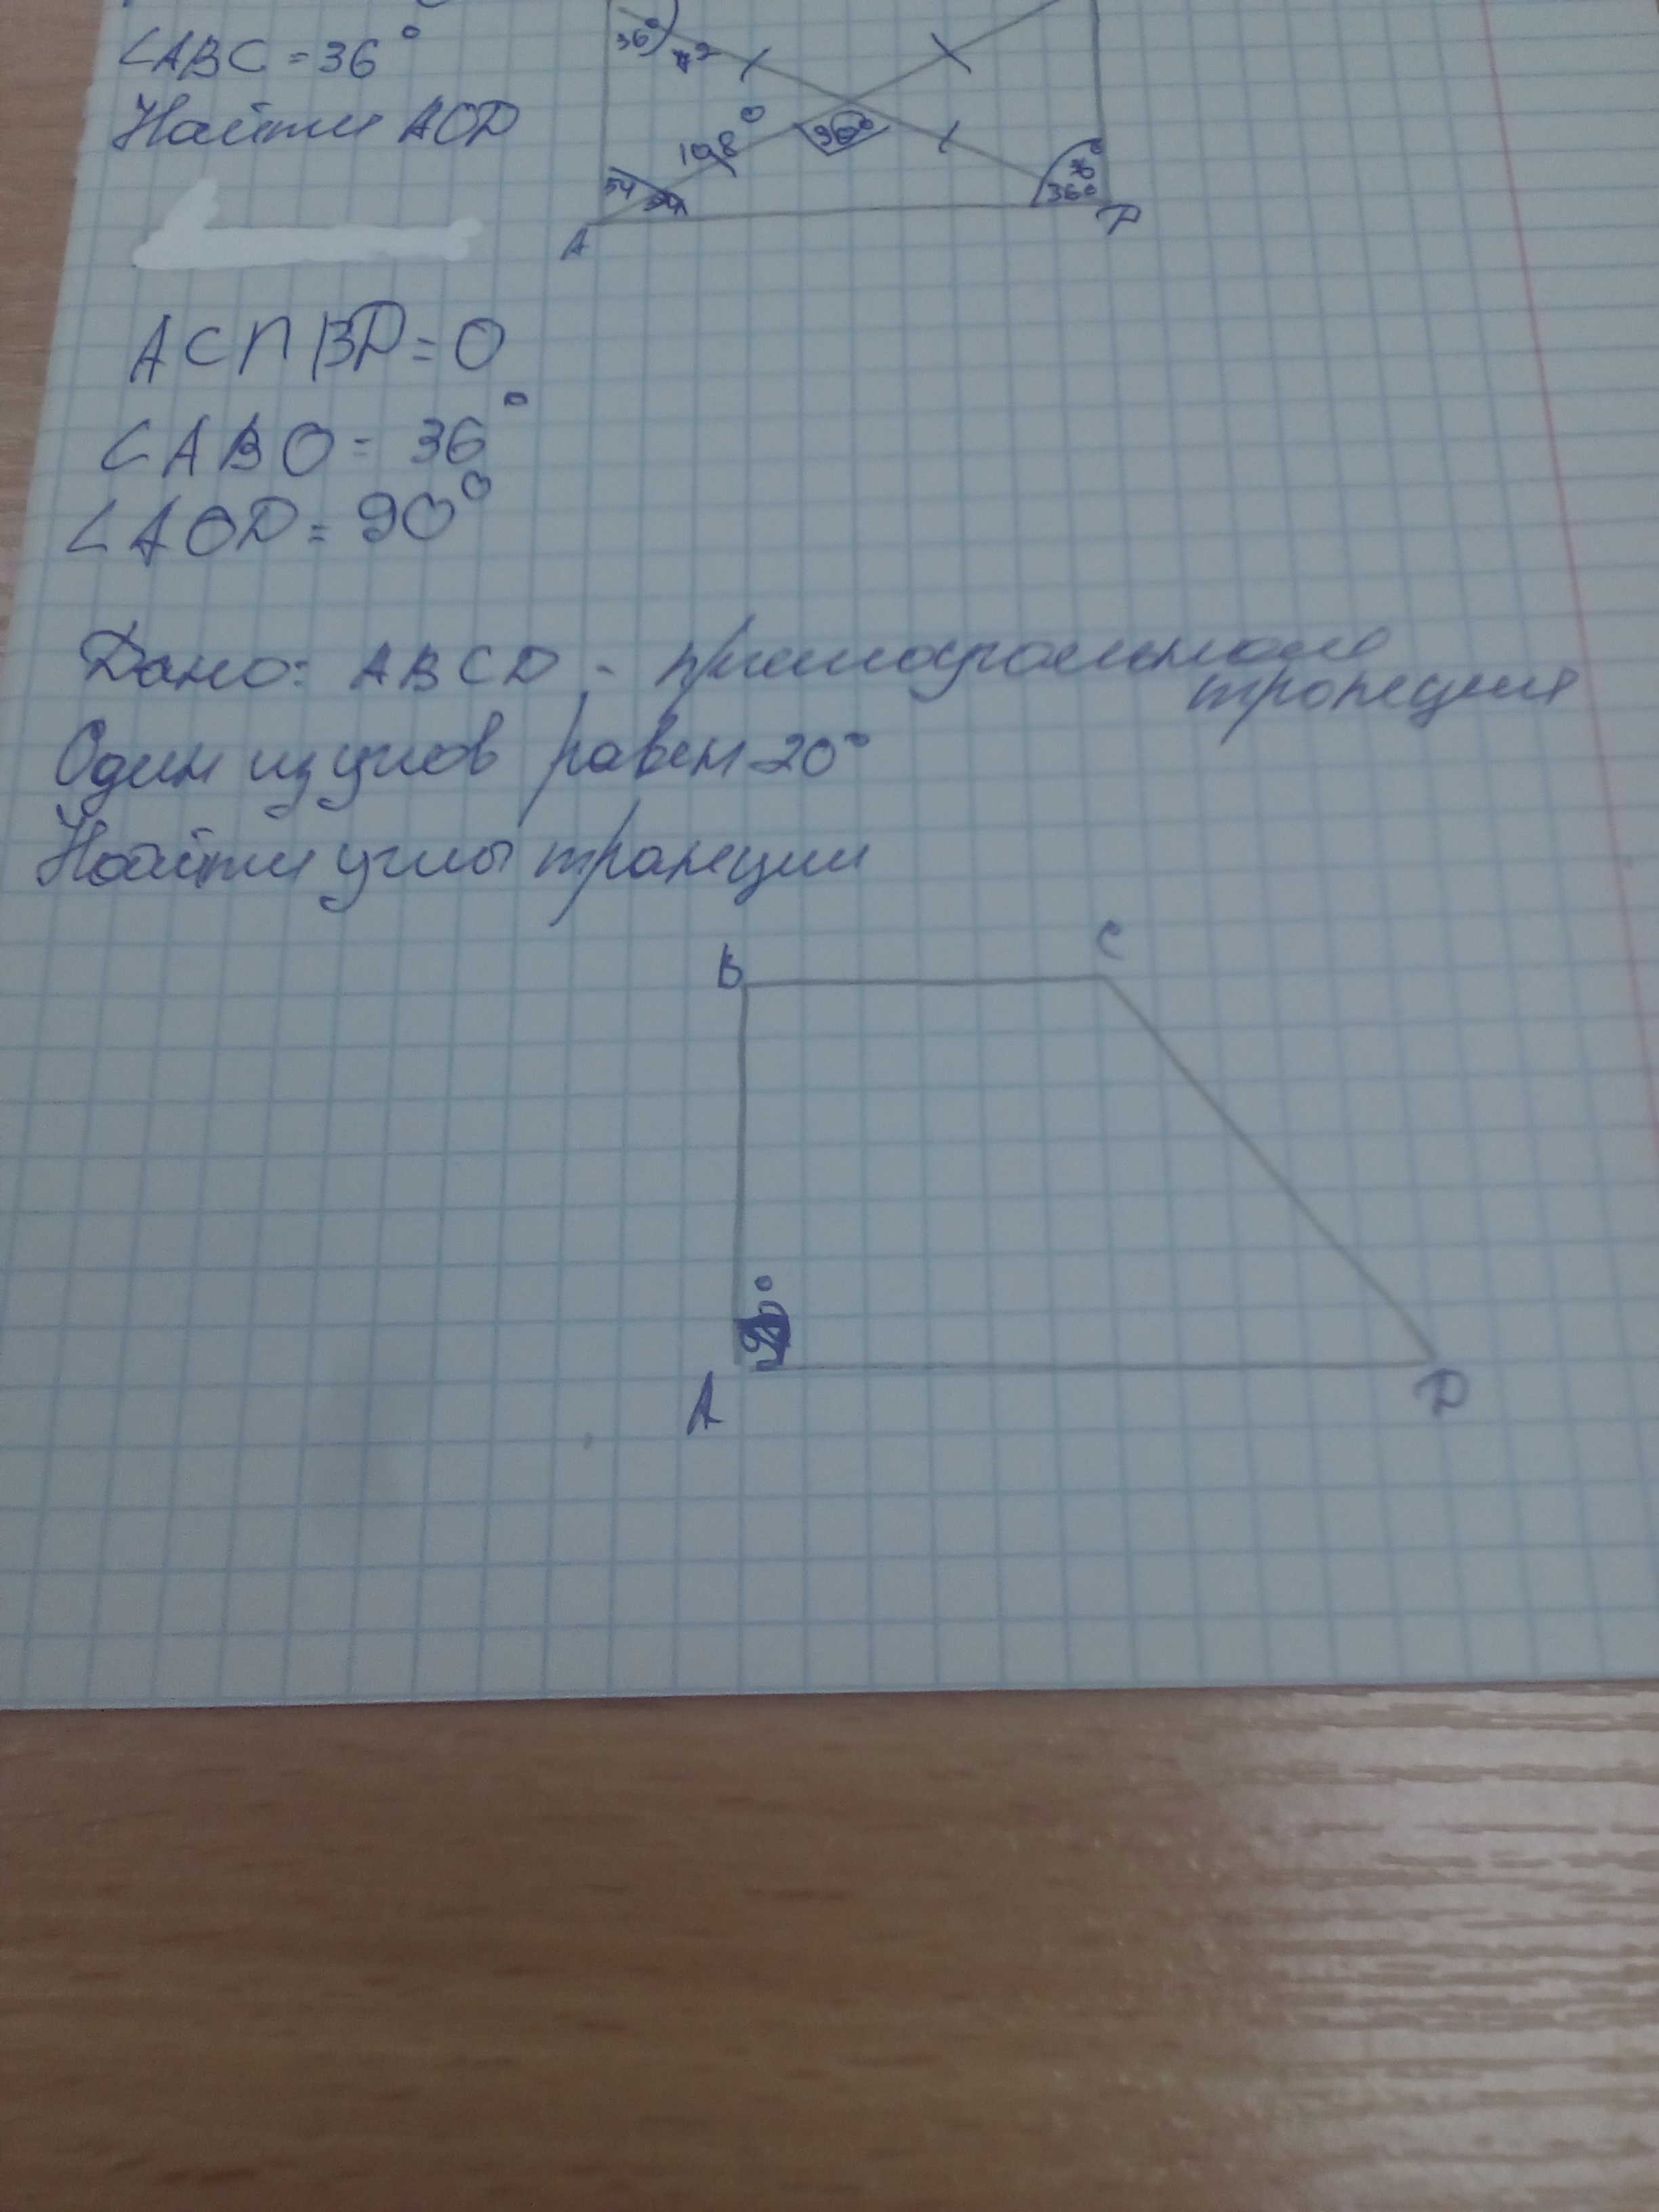 ∠ABC = 36°
Найти AOD
36°
72
108°
36°
54
36°
A
D
AC∩BD = O
∠ABO = 36°
∠AOD = 90°
Дано: ABCD - прямоугольная
трапеция
Один из углов равен 20°
Найти углы трапеции
B
C
A
D